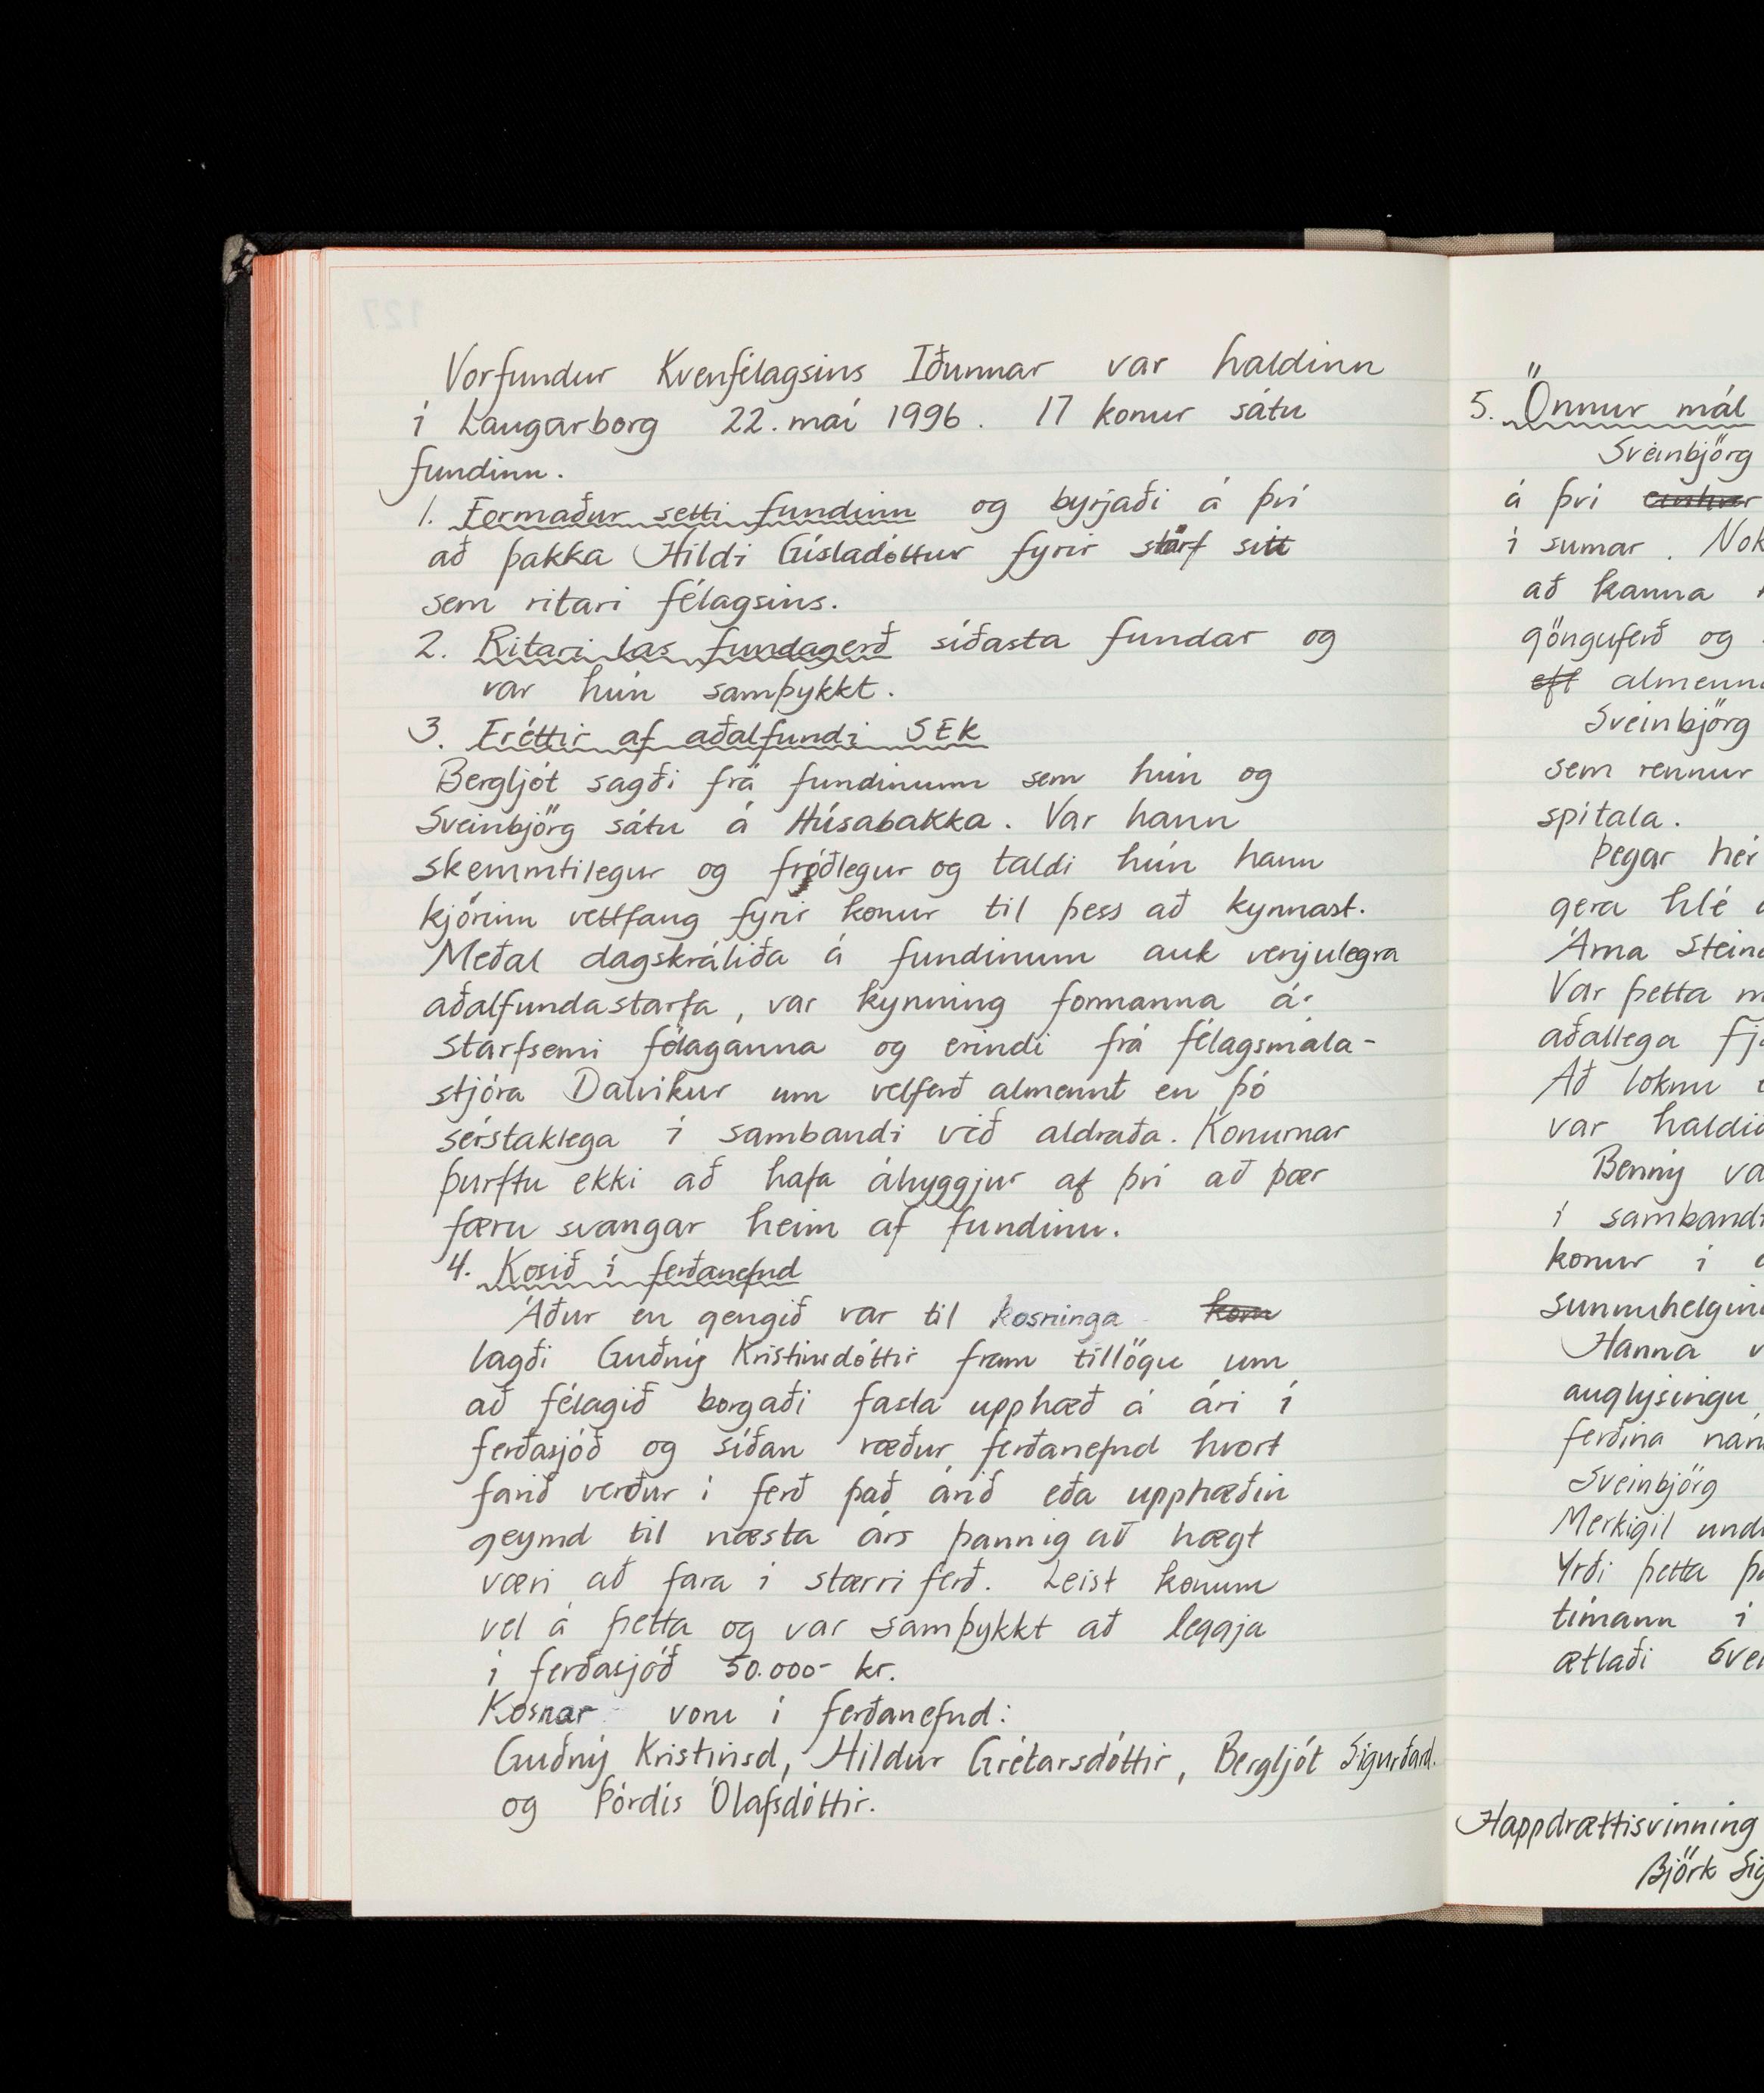 Vorfundur Kvenfélagsins Iðunnar var haldinn
í Laugarborg 22. maí 1996. 17 konur sátu
fundinn.
1. Formaður setti fundinn og byrjaði á því
að þakka Hildi Gísladóttur fyrir störf sitt
sem ritari félagsins.
2. Ritari las fundagerð síðasta fundar og
var hún samþykkt.
3. Fréttir af aðalfundi SEK
Bergljót sagði frá fundinum sem hún og
Sveinbjörg sátu á Húsabakka. Var hann
skemmtilegur og fróðlegur og taldi hún hann
kjörinn vettfang fyrir konur til þess að kynnast.
Meðal dagskráliða á fundinum auk venjulegra
aðalfundastarfa, var kynning formanna á
starfsemi félaganna og erindi frá félagsmála-
stjóra Dalvíkur um velferð almennt en þó
sérstaklega í sambandi við aldraða. Konurnar
þurftu ekki að hafa áhyggjur af því að þær
færu svangar heim af fundinu.
4. Kosið í ferðanefnd
Áður en gengið var til kosninga kom
lagði Guðný Kristinsdóttir fram tillögu um
að félagið borgaði fasta upphæð á ári í
ferðasjóð og síðan ræður ferðanefnd hvort
farið verður í ferð það árið eða upphæðin
geymd til næsta árs þannig að hægt
væri að fara í stærri ferð. Leist konum
vel á þetta og var samþykkt að leggja
í ferðasjóð 50.000- kr.
Kosnar voru í ferðanefnd:
Guðný Kristinsd, Hildur Grétarsdóttir, Bergljót Sigurðard.
og Þórdís Ólafsdóttir.
5. Önnur mál
Sveinbjörg
á því
í sumar. Nok
að kanna
gönguferð og
eft almenn
Sveinbjörg
sem rennur
spítala.
Þegar hér
gera hlé
Árna Stein
Var þetta
aðallega fj
Að loknu
var haldi
Benný va
í samband
konur í
sunnuhelgin
Hanna v
auglýsingu
ferðina nán
Sveinbjörg
Merkigil und
Yrði þetta þ
tímann í
ætlaði Sve
Happdrættisvinning
Björk Sig